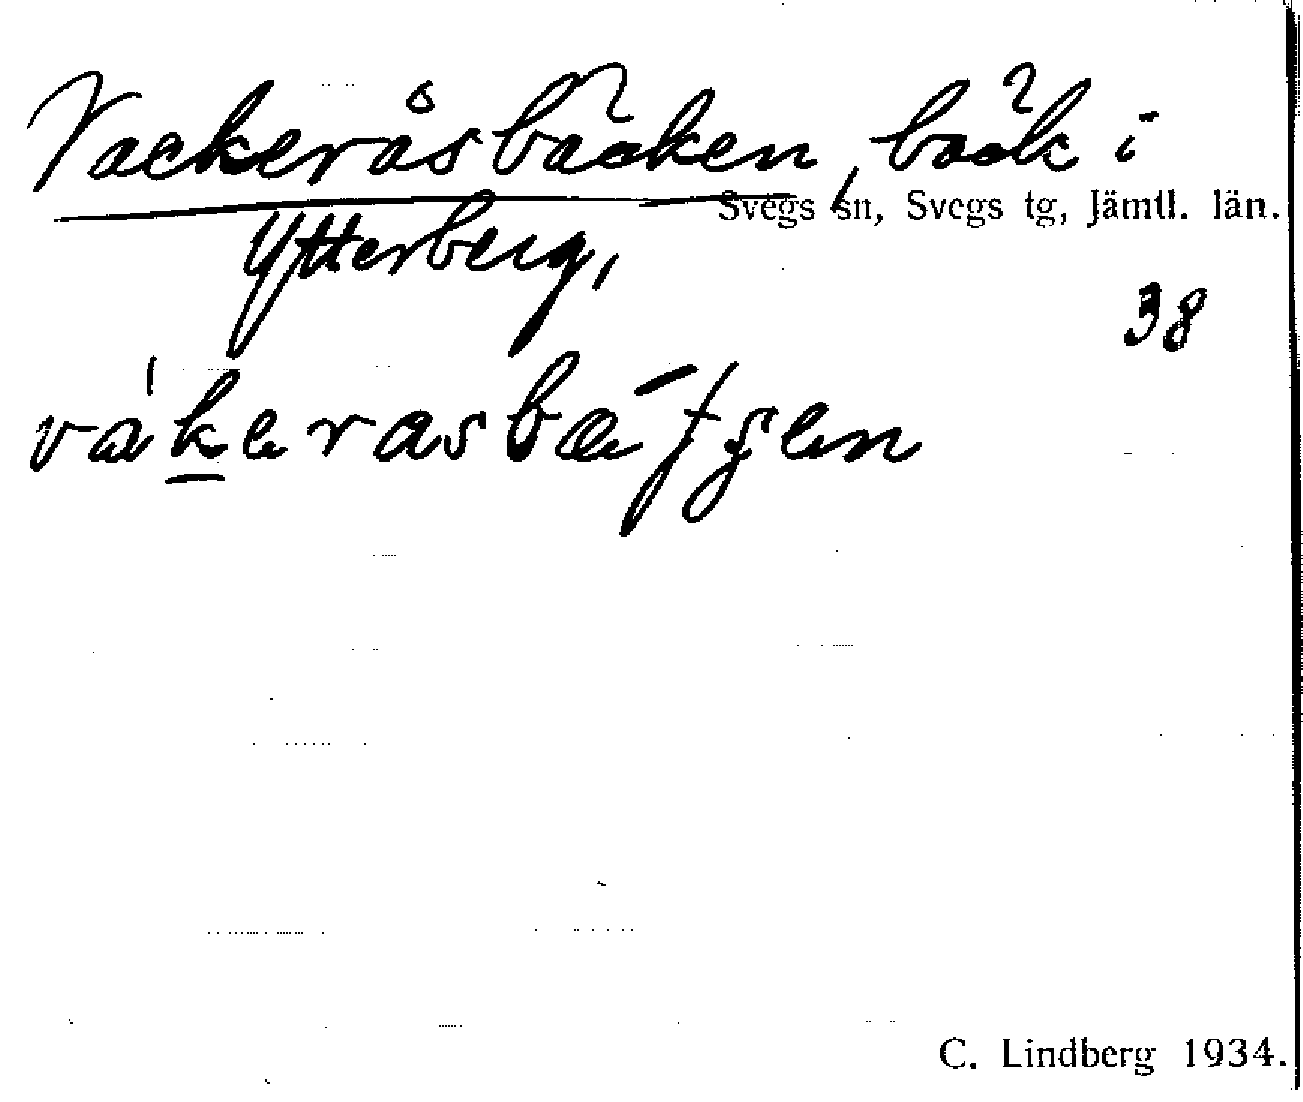 Vackeråsbäcken, bäck i
Svegs sn, Svegs tg, Jämtl. län.
Ytterberg,
38
C. Lindberg 1934.